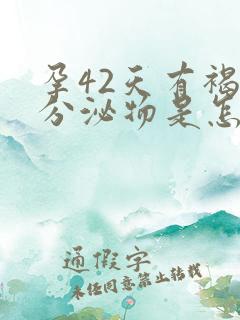 孕42天有褐
分泌物是怎
通假字
未经同意禁止转载